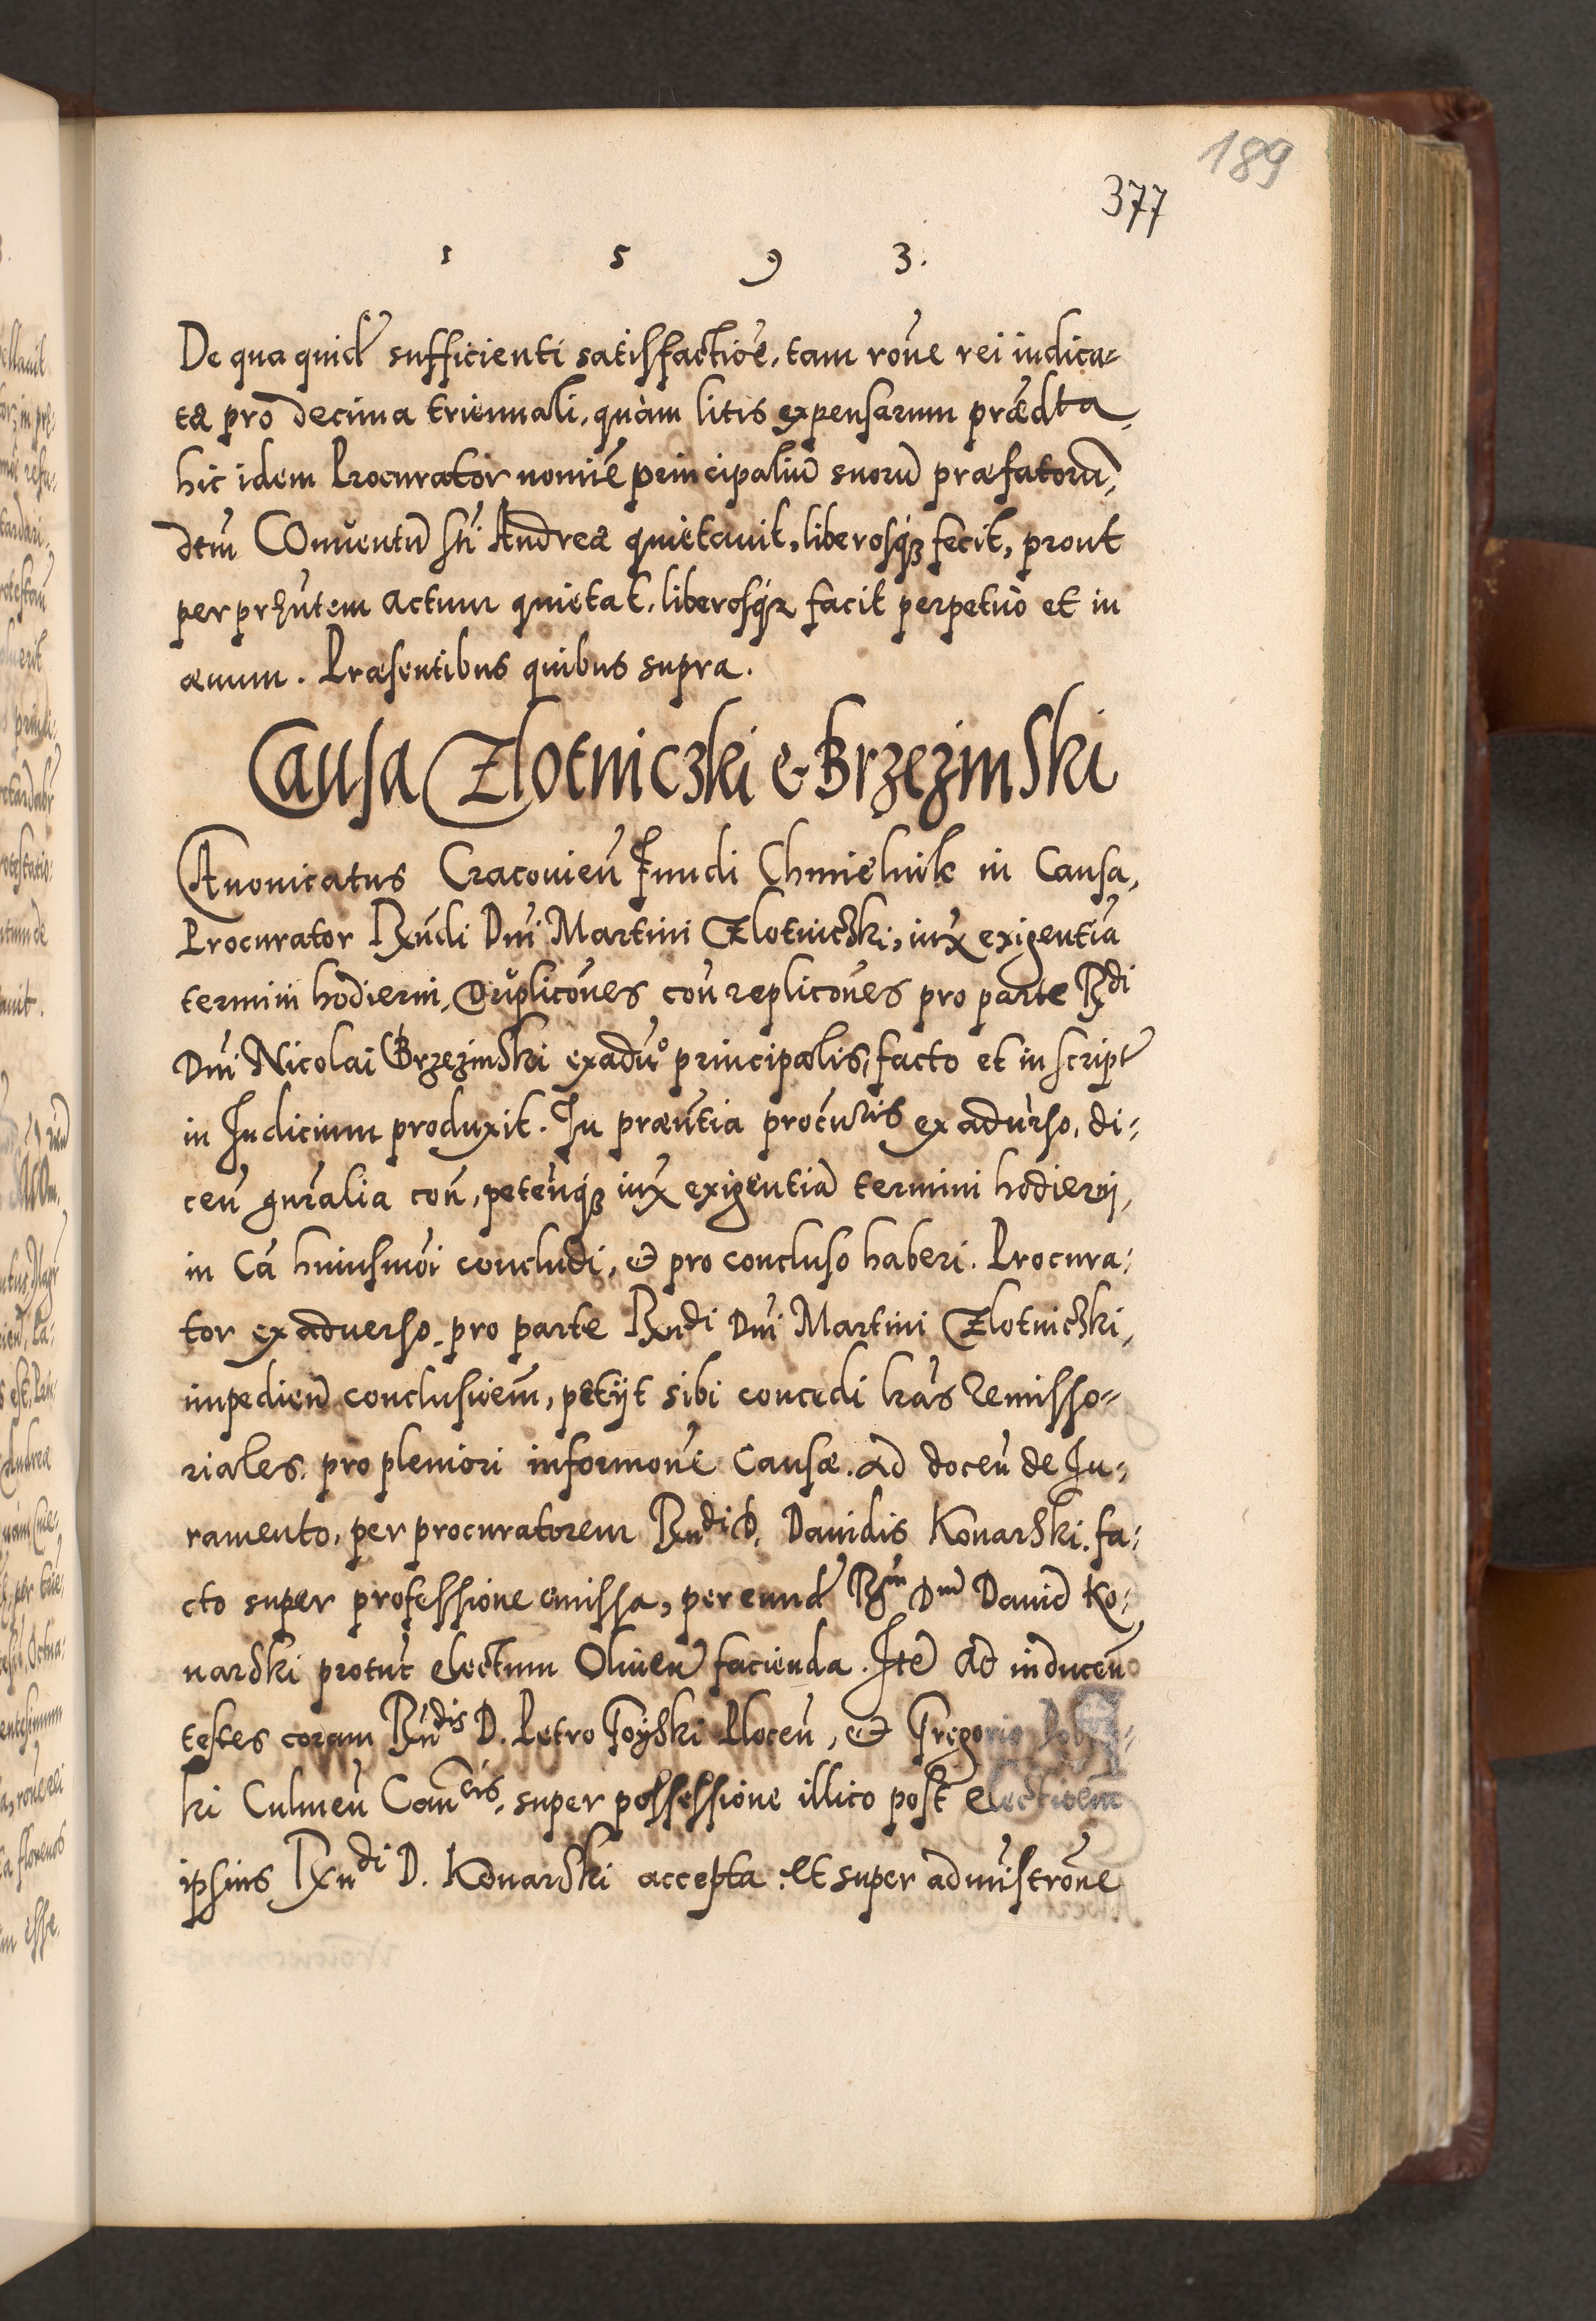 189
377
1 5 9 3.
De qua quid̃ sufficienti satisfactiõe, tam rõne rei iudica=
tæ pro decima triennali, quàm litis expensarum præd̃ta,
hic idem Procurator nomiẽ principaliũ suorũ præfatorũ,
dc̃m Conuentũ Sti Andreæ quietauit, liberosq̃ fecit, prout
per prñtem actum quietat, liberosq̃ facit perpetuò et in
æuum. Præsentibus quibus supra.
Causa Zlotniczki & Brzezinski
Canonicatus Cracouieñ Fundi Chmielnik in Causa,
Procurator Rñdi Dñi Martini Zlotniczki, iux̃ exigentiã
termini hodierni, Duplicões coñ replicões pro parte Rdi
Dñi Nicolai Brzezinski exadũo principalis, facto et in script̃
in Iudicium produxit. In præñtia procũris ex adũrso, di=
ceñ gñralia coñ, peteñq̃ iux̃ exigentiã termini hodierni,
in Cã huiusmõi concludi, & pro concluso haberi. Procura=
tor ex aduerso pro parte Rndi Dñi Martini Zlotniczki,
impedieñ conclusioẽm, petijt sibi concedi lr̃as Remisso=
riales, pro pleniori informõne Causæ. ad doceñ de Iu=
ramento, per procuratorem Rndi D. Dauidis Konarski. fa=
cto super professione emissa, per eund̃ Rm Dnũ Dauid Ko=
narski protũc electum Oliueñ facienda. Itẽ ad induceñ
testes coram Rñdis D. Petro Goyski Ploceñ, & Gregorio
ki Culmeñ Cañcis, super possessione illico post electioẽm
ipsius Rndi D. Konarski accepta. et super admistrõne